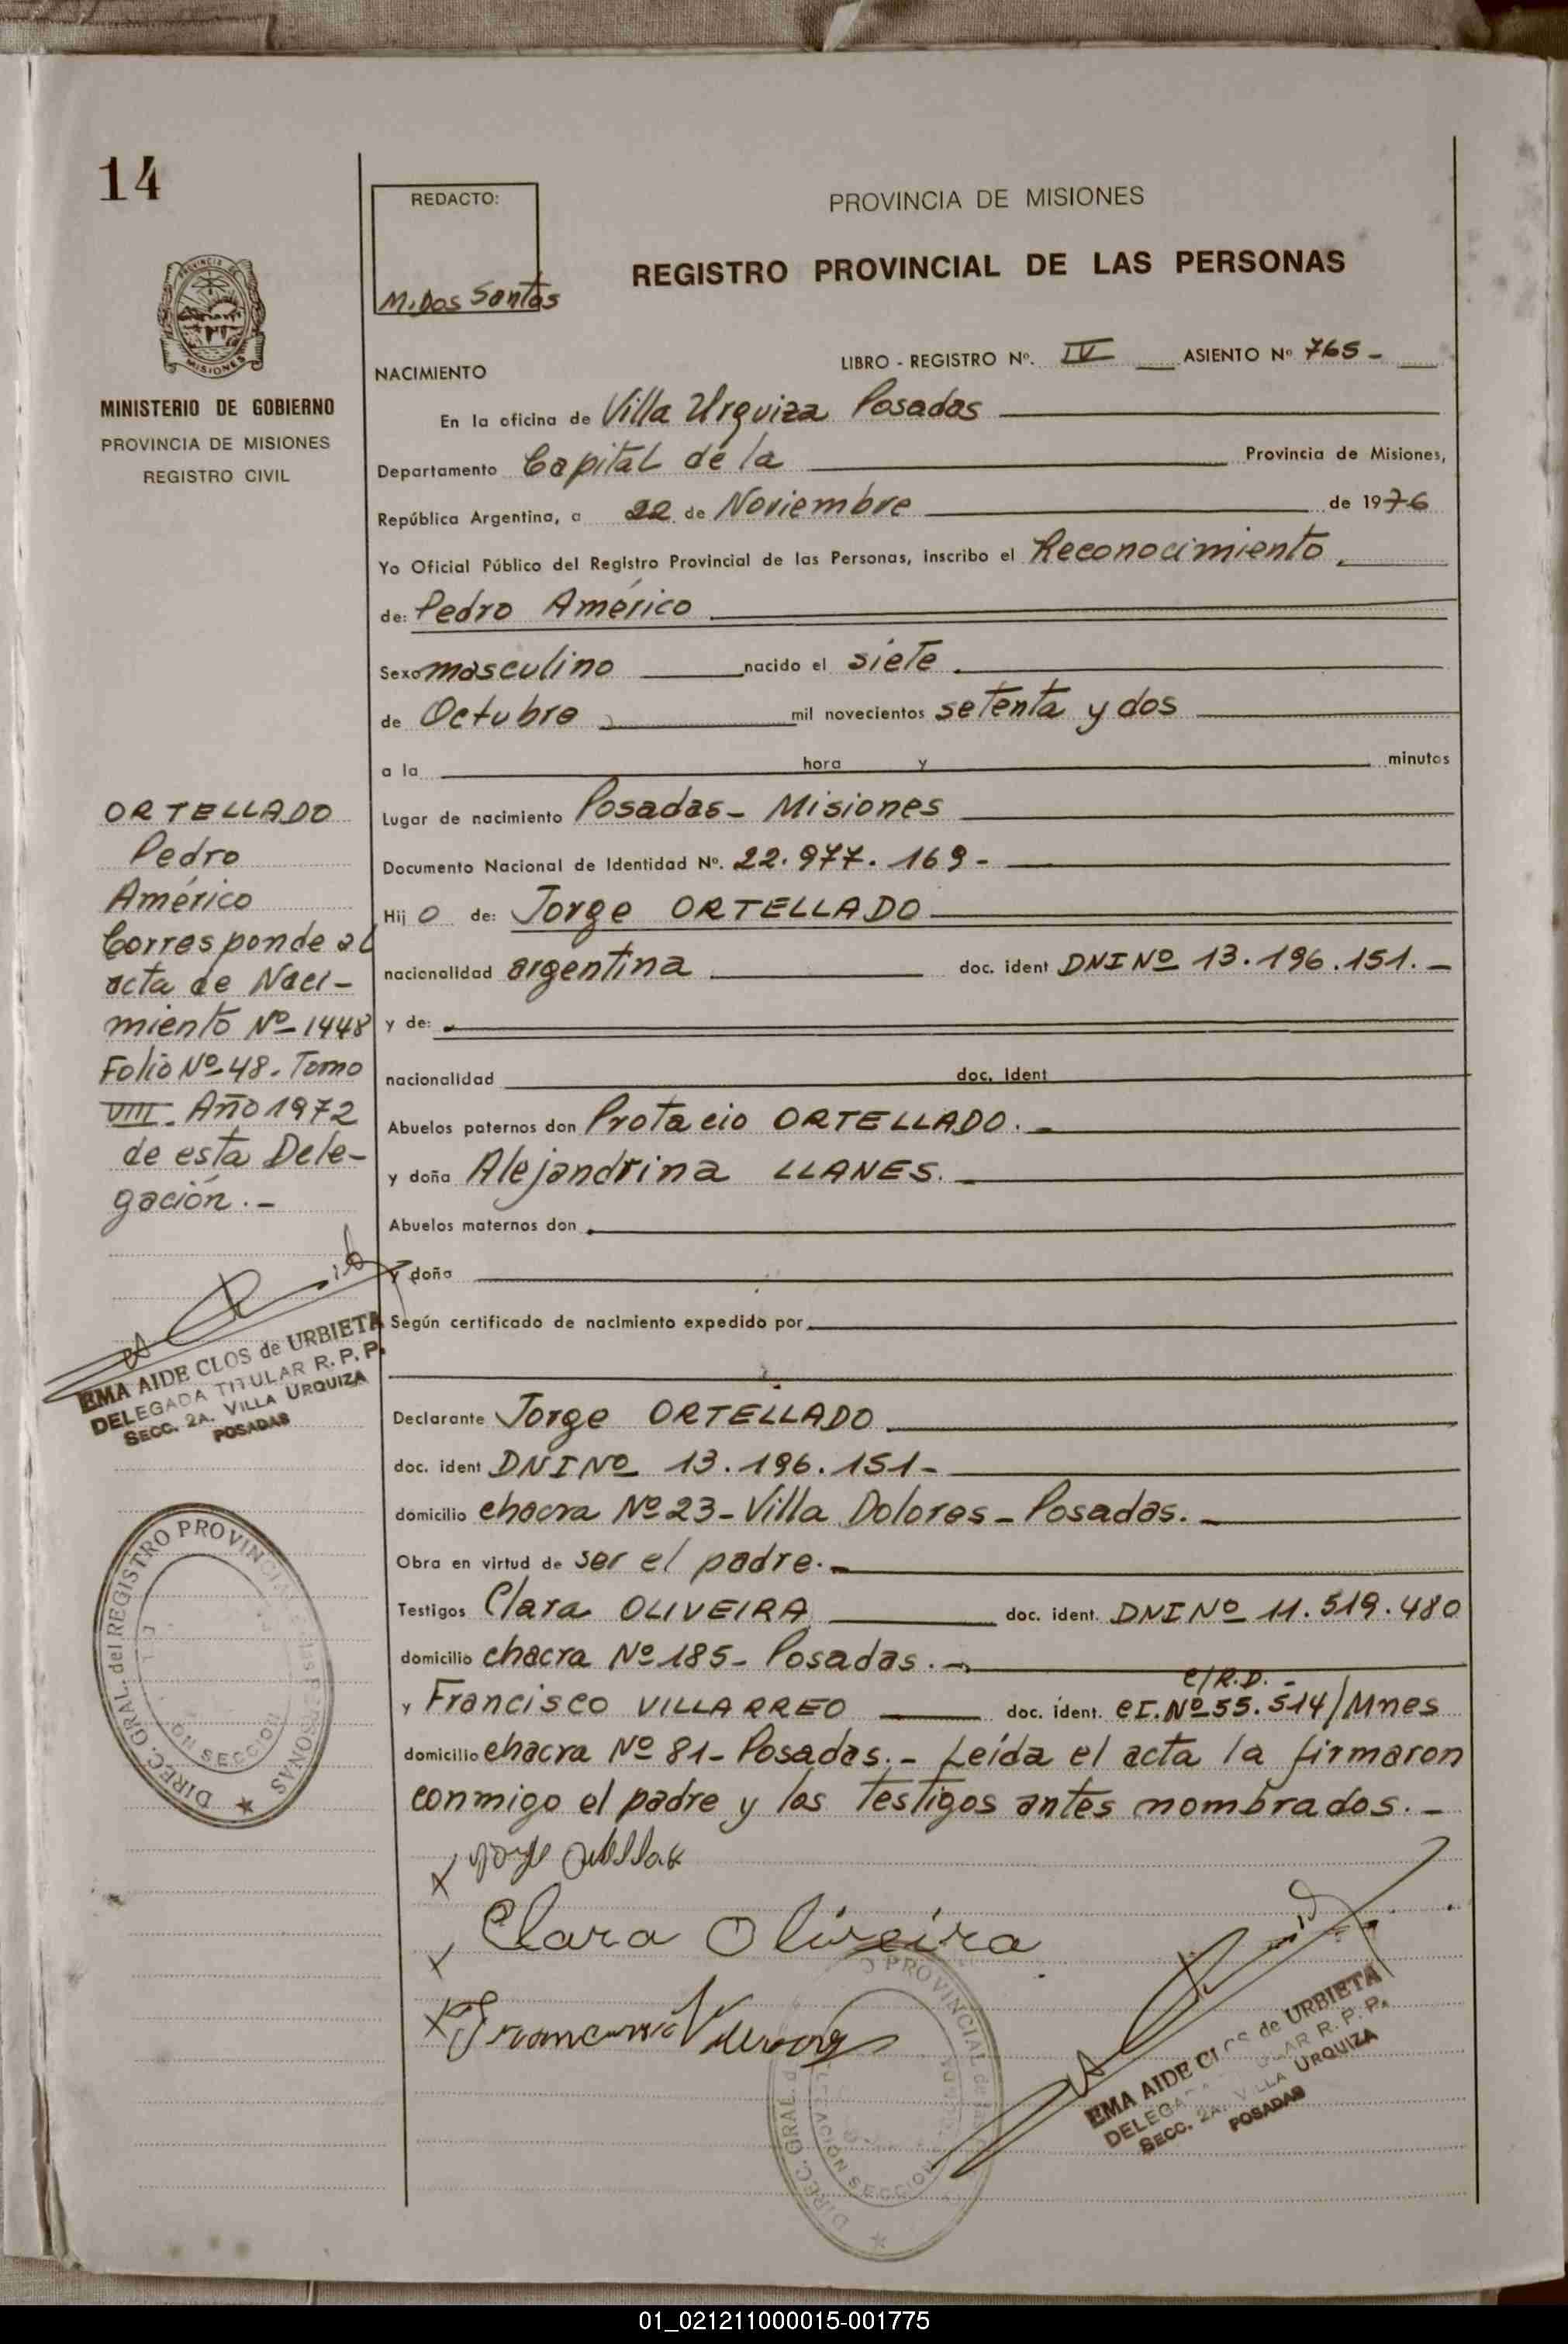 14
REDACTO:
M. Dos Santos
PROVINCIA DE MISIONES
REGISTRO PROVINCIAL DE LAS PERSONAS
PROVINCIA DE
MISIONES
MINISTERIO DE GOBIERNO
PROVINCIA DE MISIONES
REGISTRO CIVIL
NACIMIENTO
LIBRO - REGISTRO Nº. IV ASIENTO Nº 765 -
En la oficina de Villa Urquiza Posadas
Departamento Capital de la Provincia de Misiones,
República Argentina, a 22 de Noviembre de 1976
Yo Oficial Público del Registro Provincial de las Personas, inscribo el Reconocimiento
de: Pedro Américo
Sexo masculino nacido el siete
de Octubre mil novecientos setenta y dos
a la hora y minutos
Lugar de nacimiento Posadas - Misiones
Documento Nacional de Identidad Nº. 22.977.169 -
Hij o de: Jorge ORTELLADO
nacionalidad argentina doc. ident DNI Nº 13.196.151. -
y de:
nacionalidad doc. ident
Abuelos paternos don Protacio ORTELLADO. -
y doña Alejandrina LLANES. -
Abuelos maternos don
y doña
Según certificado de nacimiento expedido por
Declarante Jorge ORTELLADO
doc. ident DNI Nº 13.196.151 -
domicilio chacra Nº 23 - Villa Dolores - Posadas. -
Obra en virtud de ser el padre. -
Testigos Clara OLIVEIRA doc. ident. DNI Nº 11.519.480
domicilio chacra Nº 185 - Posadas. -
c/R.D. -
y Francisco VILLARREO doc. ident. CI. Nº 55.514/Mnes
domicilio chacra Nº 81 - Posadas. - Leída el acta la firmaron
conmigo el padre y los testigos antes nombrados. -
ORTELLADO
Pedro
Américo
Corresponde al
acta de Naci-
miento Nº 1448
Folio Nº 48. Tomo
VIII. Año 1972
de esta Dele-
gación. -
EMA AIDE CLOS de URBIETA
DELEGADA TITULAR R. P. P.
SECC. 2A. VILLA URQUIZA
POSADAS
DIREC. GRAL. del REGISTRO PROVINCIAL de las PERSONAS
SECCION
x Jorge
x Clara Oliveira
x
DIREC. GRAL. PROVINCIAL de las
SECCION
EMA AIDE CLOS de URBIETA
R. P. P.
SECC. 2A. VILLA URQUIZA
POSADAS
01_021211000015-001775